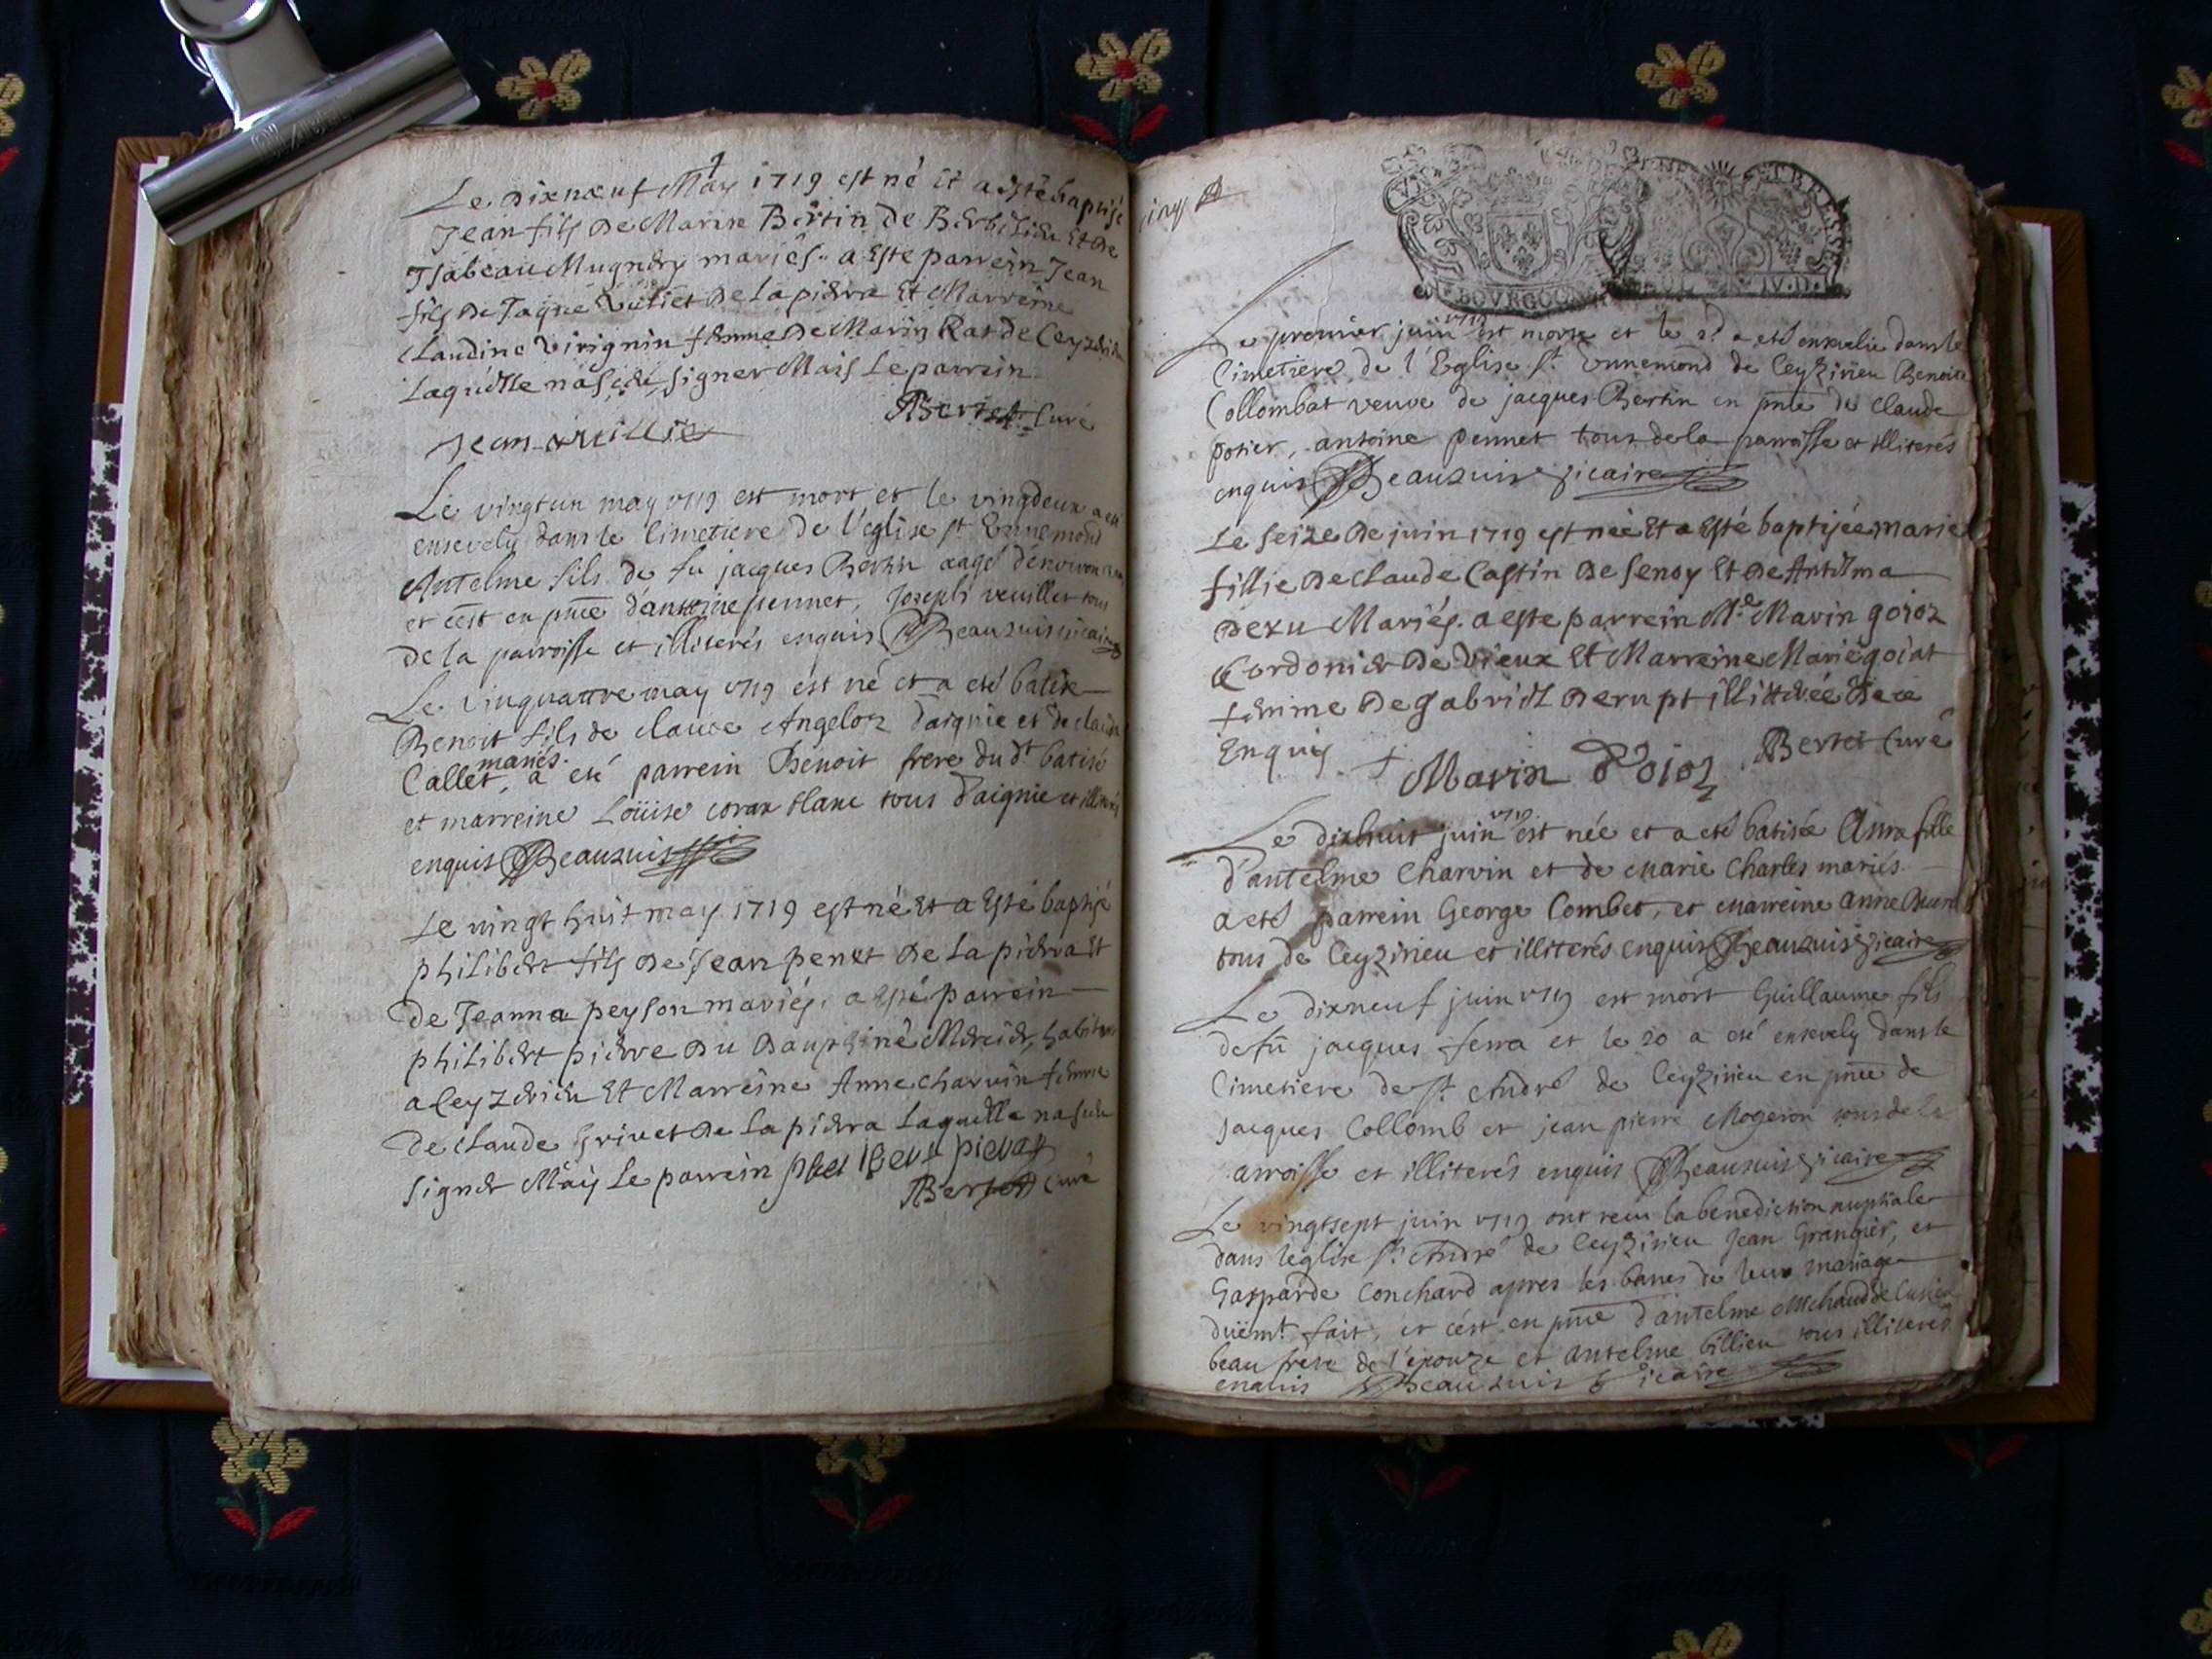 Le dixneuf May 1719 est né Et a esté baptisé
Jean fils de Marin Bertin de Berbisieu Et de
Isabeau Mugnery mariés. a Este parrein Jean
fils de Jaque de la pierra Et Marreine
Claudine Virignin femme de Marin Rat de Ceyzerieu
Laquelle na sceu signer Mais Le parrein
Bertet Curé
Jean
Le vingtun may 1719 est mort et le vingdeux a eté
ensevely dans le Cimetiere de l'eglise st Ennemond
Antelme fils de fu jacques Bertin aagé d'environ
et c'est en pñce d'antoine pennet, Joseph veuillet tous
de la parroisse et illiterés enquis Beauzuis vicaire
Le vinquattre may 1719 est né et a eté batisé
Benoit fils de claude Angeloz d'aignie et de claudine
mariés.
Callet, a eté parrein Benoit frere du dt batisé
et marreine Loüise coraz blanc tous d'aignie et illiterés
enquis Beauzuis
Le vingt huit may 1719 est né Et a Esté baptisé
philibert fils de Jean penet de La pierra Et
de Jeanna peyson mariés. a Esté parrein
philibert pierre du dauphiné Mercier, habitant
a Ceyzerieu Et Marreine Anne charvin femme
de claude Grivet de La pierra Laquelle na sceu
signer Mais Le parrein
Bertet Curé
BOURGOGNE
Le premier juin 1719 est morte et le 2d a eté ensevelie dans le
Cimetiere de l'Eglise st. Ennemond de Ceyzirieu Benoite
Collombat veuve de jacques Bertin en pñce de claude
potier, antoine pennet tous de la parroisse et illiterés
enquis Beauzuis vicaire
Le seize de juin 1719 est née Et a Esté baptisée marie
fillie de claude Castin de senoy Et de Antelma
deru Mariés. a este parrein Me. Marin goioz
Cordonier de Vieux Et Marreine Marie goiat
femme de gabriel derupt illitterée de ce
Enquis Bertet Curé
Marin Goioz
Le dixhuit juin 1719 est née et a eté batisée Anna fille
d'antelme Charvin et de marie Charles mariés.
a eté parrein George Combet, et marreine anne
tous de Ceyzirieu et illiterés enquis Beauzuis vicaire
Le dixneuf juin 1719 est mort Guillaume fils
de fû jacques ferra et le 20 a eté ensevely dans le
Cimetiere de st. André de Ceyzirieu en pñce de
jacques Collomb et jean pierre Mogeron tous de la
arroisse et illiterés enquis Beauzuis vicaire
Le vingtsept juin 1719 ont receu la benediction nuptiale
dans leglise st. André de Ceyzirieu Jean Grangier, et
Gasparde Conchard apres les banes de leur mariage
duëmt. fait, et c'est en pñce d'antelme Michaud de
beau frere de l'epouze et antelme billieu tous illiterés
enquis Beauzuis vicaire